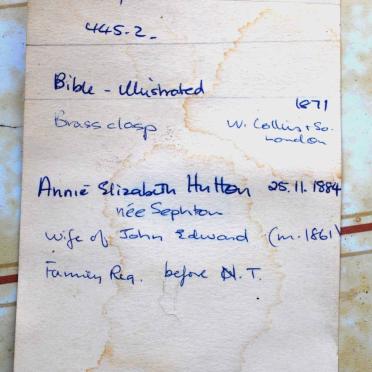 445.2.
Bible - Illustrated
1871
Brass clasp W. Collins + So.
London
Annie Elizabeth Hutton 25.11.1884
née Sephton
Wife of John Edward (m. 1861)
Family Reg. before N.T.